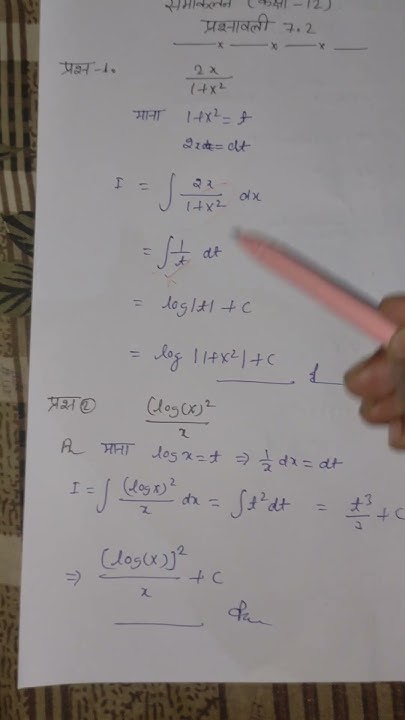 समाकलन (कक्षा -12)
प्रश्नावली 7.2
प्रश्न-1. 2x/1+x²
माना 1+x² = t
2xdx = dt
I = ∫ 2x/1+x² dx
= ∫ 1/t dt
= log|t| + C
= log |1+x²| + C
प्रश्न ② (log(x)²/x
माना log x = t ⇒ 1/x dx = dt
I = ∫ (logx)²/x dx = ∫ t² dt = t³/3 + C
⇒ [log(x)]²/x + C